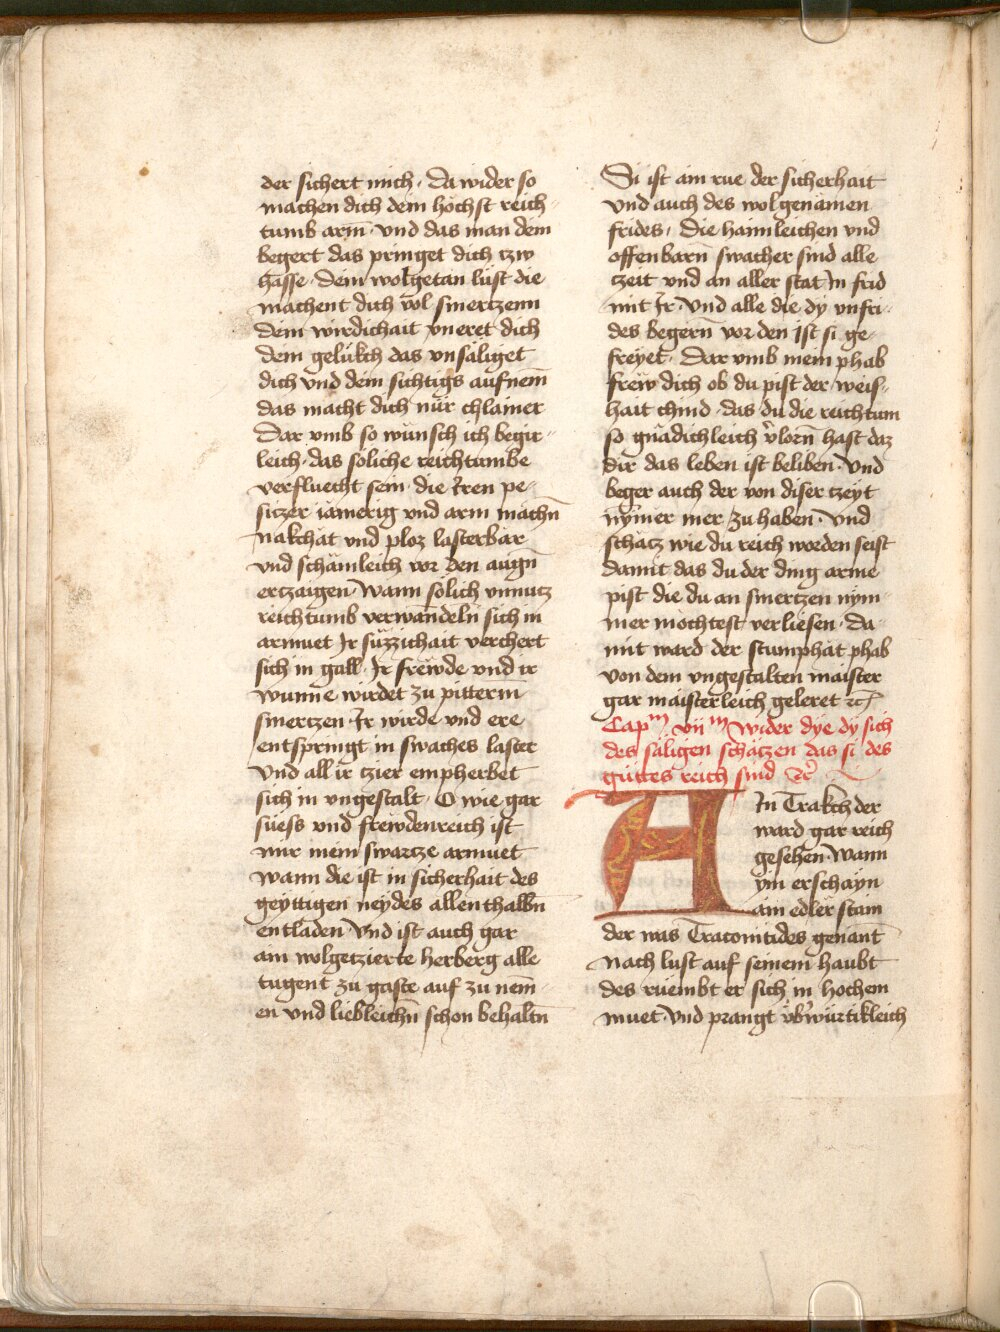 der sichert mich · Da wider so
machen dich dein höchst reich-
tumb arm · vnd das man dem
begert das pringet dich tzw
hasse · dein wolgetan lüst die
machent dich vol smertzenn
dein wirdichait vneret dich
dem gelükch das vnsäliget
dich vnd dein sichtigs aufnem̄
das macht dich nür chlainer
Dar vmb so wünsch ich begir-
leich · das soliche reichtumbe
verfluecht sein · die Iren pe-
siczer iämerig vnd arm mach̄n
nakchat vnd ploz lasterbär
vnd schämleich vor den augn̄
ertzaigen · Wann sölich vnnucz
reichtumb verwandeln̄ sich in
armuet Ir süzzichait verchert
sich in gall · Ir frewde vnd ir
wunne wirdet zu pitterm̄
smertzen · Ir wirde vnd ere
entspringt in swaches laster
Vnd all ir tzier empherbet
sich in vngestalt · O wie gar
süess vnd frewdenreich ist
mir mein swartze armuet
wann die ist in sicherhait des
geyttigen neydes allenthalbn̄
entladen Vnd ist auch gar
ain wolgetzierte herberg alle
tugent zu gaste auf zu nem-
en vnd liebleichn̄ schon behaltn̄
Si ist ain rue der sicherhait
vnd auch des wolgenämen
frides · Die haimleichen vnd
offenbarn̄ swacher sind alle
zeit vnd an aller stat In frid
mit Ir · Vnd alle die dy vnfri-
des begern̄ vor den Ist si ge-
freyet · Dar vmb mein phab
frëw dich ob du pist der weis-
hait chind · das du die reichtum
so gnädichleich v̉lorn̄ hast daz
dir das leben ist beliben · Vnd
beger auch der von diser tzeyt
nym̄er mer zu haben · Vnd
schäcz wie du reich worden seist
damit das du der ding arme
pist die du an smertzen nym-
mer möchtest verliesen · Da-
mit ward der stumphät phab
von dem vngestalten maister
gar maisterleich geleret ꝛc̄
Cap<sup>m</sup> vii<sup>m</sup> Wider dye dy sich
des säligen schäczen das si des
güttes reich sind ꝛc̄
AIn Trakch der
ward gar reich
gesehen · Wann
ym erschayn
ain edler stain
der was Traconitides genant
nach lust auf seinem haubt
des ruembt er sich in hochem
muet · Vnd prangt v̈b̉würtikleich